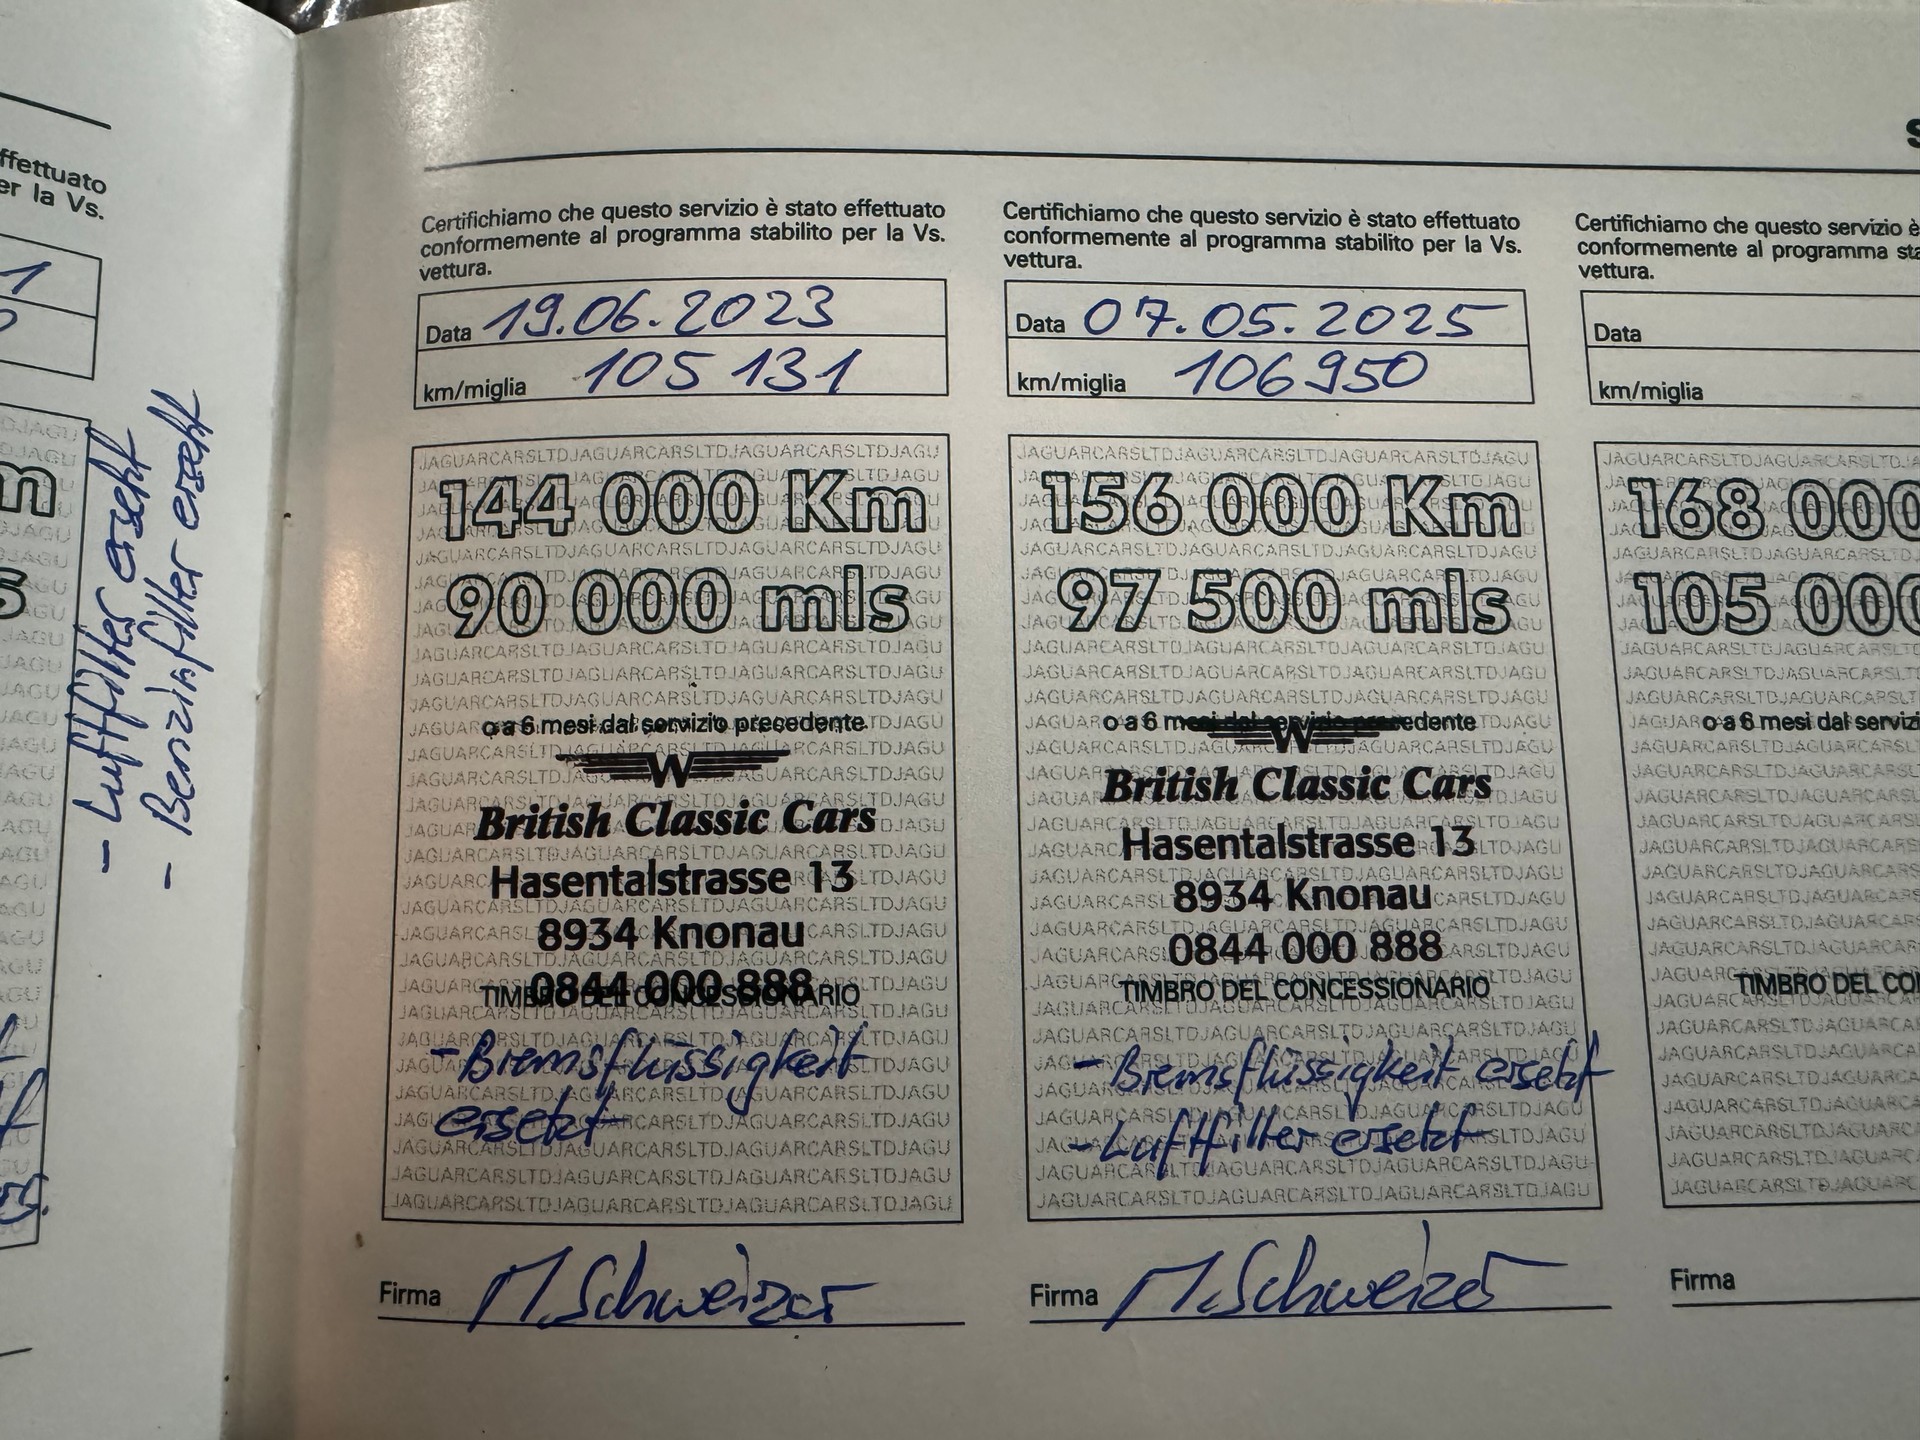 ffettuato
er la Vs.
1
- Luftfilter ersetzt
- Benzinfilter ersetzt
S
Certifichiamo che questo servizio è stato effettuato
conformemente al programma stabilito per la Vs.
vettura.
Data 19.06.2023
km/miglia 105 131
144 000 Km
90 000 mls
o a 6 mesi dal servizio precedente
W
British Classic Cars
Hasentalstrasse 13
8934 Knonau
0844 000 888
TIMBRO DEL CONCESSIONARIO
- Bremsflüssigkeit
ersetzt
Firma M.Schweizer
Certifichiamo che questo servizio è stato effettuato
conformemente al programma stabilito per la Vs.
vettura.
Data 07.05.2025
km/miglia 106950
156 000 Km
97 500 mls
o a 6 mesi dal servizio precedente
W
British Classic Cars
Hasentalstrasse 13
8934 Knonau
0844 000 888
TIMBRO DEL CONCESSIONARIO
- Bremsflüssigkeit ersetzt
- Luftfilter ersetzt
Firma M.Schweizer
Certifichiamo che questo servizio è
conformemente al programma sta
vettura.
Data
km/miglia
168 000
105 000
o a 6 mesi dal servizi
TIMBRO DEL CON
Firma